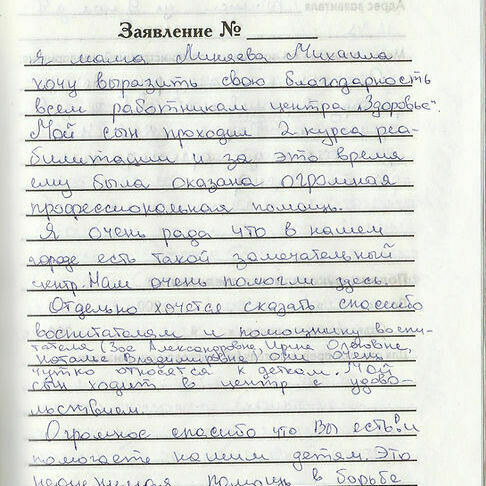 Заявление №
Я мама Линяева Михаила
хочу выразить свою благодарность
всем работникам центра „Здоровье".
Мой сын проходил 2 курса реа-
билитации и за это время
ему была оказана огромная
профессиональная помощь.
Я очень рада что в нашем
городе есть такой замечательный
центр. Нам очень помогли здесь.
Отдельно хочется сказать спасибо
воспитателям и помощнику воспи-
тателя (Зое Александровне, Ирине Олеговне,
Наталье Владимировне), они очень
чутко относятся к деткам. Мой
сын ходит в центр с удово-
льствием.
Огромное спасибо что Вы есть и
помогаете нашим детям. Это
неоценимая помощь в борьбе